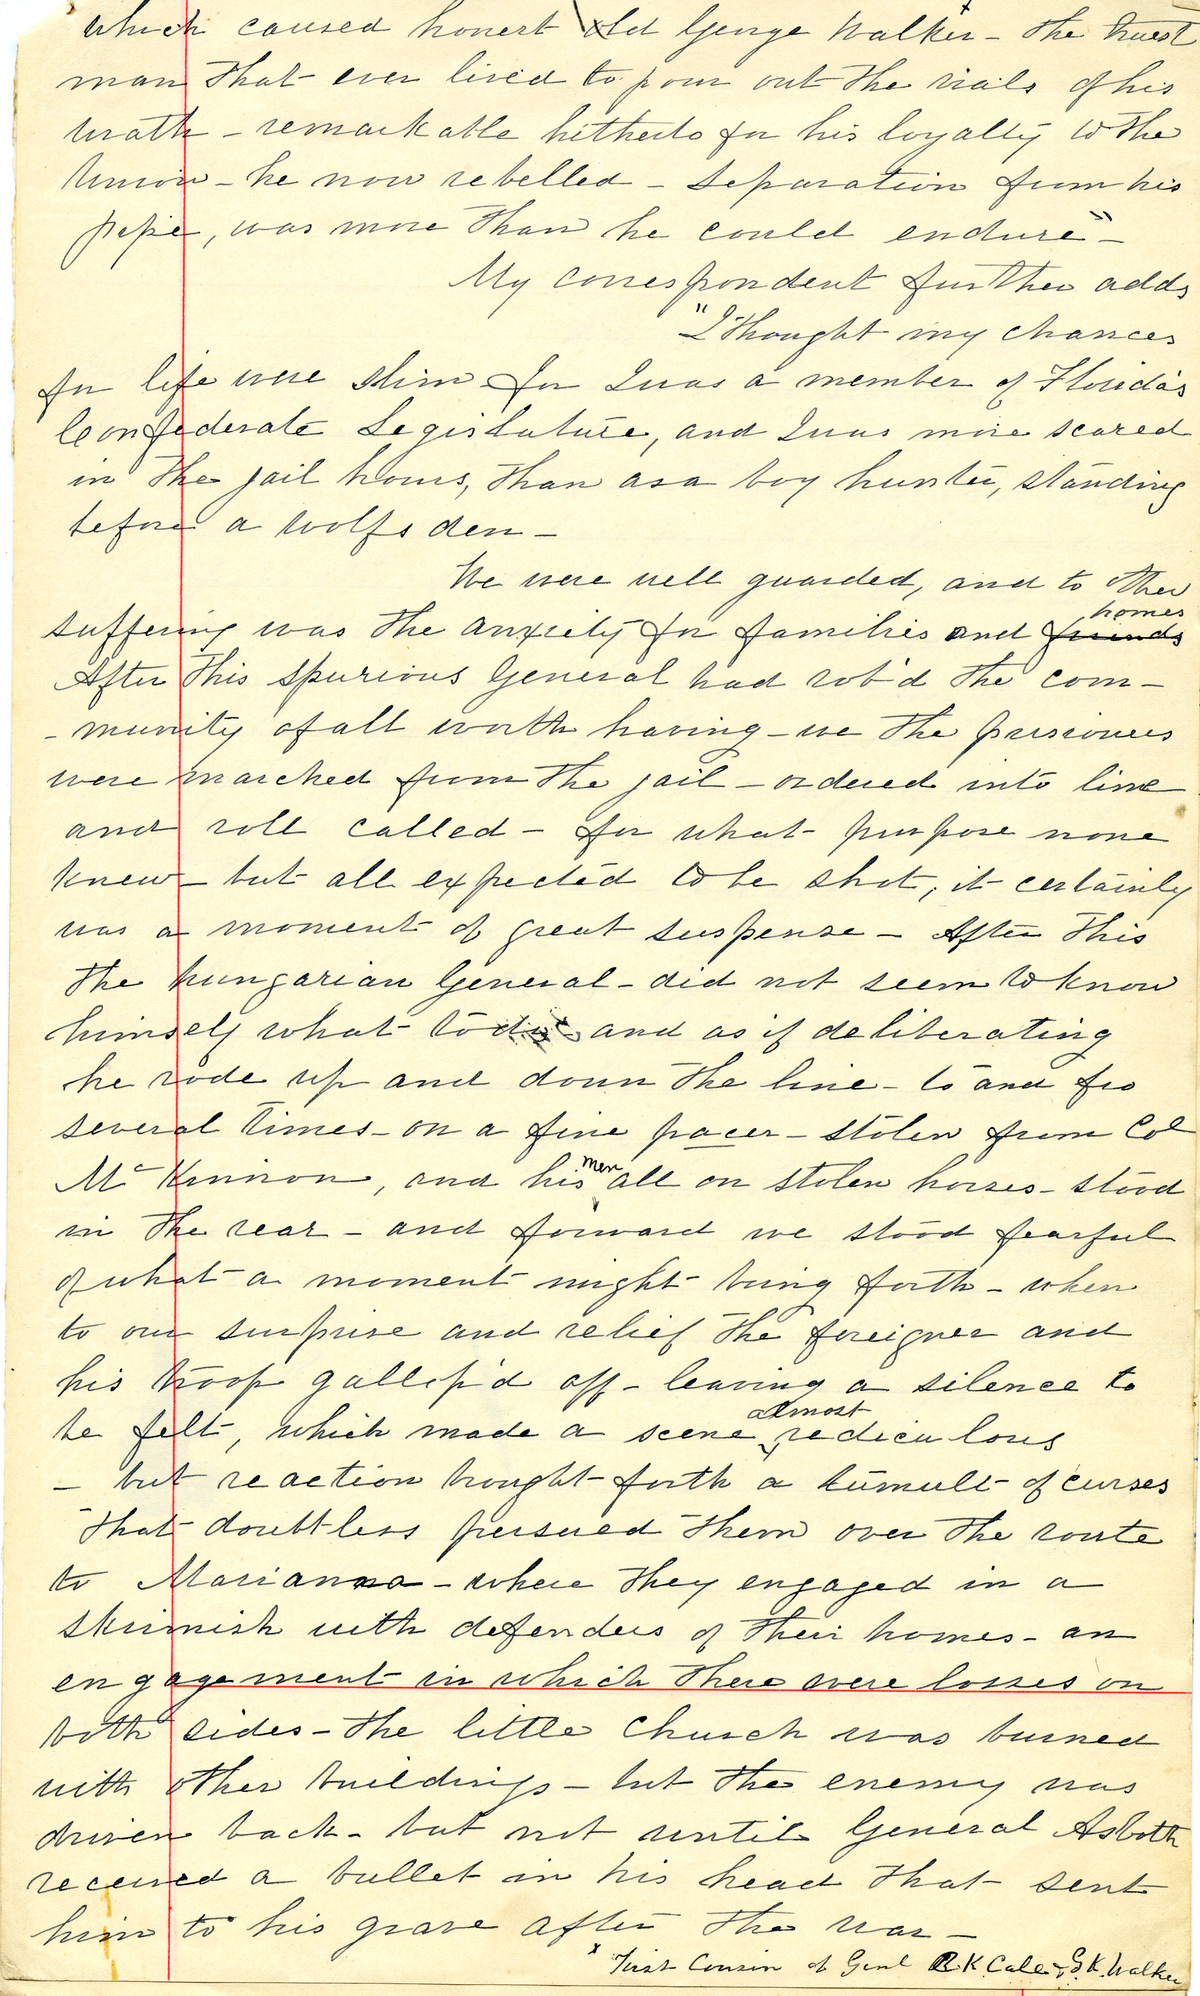 which caused honest old George Walker - the truest
man that ever lived to pour out the vials of his
wrath - remarkable hitherto for his loyalty to the
Union - he now rebelled - separation from his
pipe, was more than he could endure" -
My correspondent further adds
"I thought my chances
for life were slim for I was a member of Florida's
Confederate Legislature, and I was more scared
in the jail hours, than as a boy hunter, standing
before a wolfs den -
We were well guarded, and to other
suffering was the anxiety for families and friends
homes
After this spurious General had rob'd the com-
- munity of all worth having - we the prisoners
were marched from the jail - ordered into line
and roll called - for what purpose none
knew - but all expected to be shot, it certainly
was a moment of great suspense - After this
the hungarian General - did not seem to know
himself what to do and as if deliberating
he rode up and down the line - to and fro
several times - on a fine pacer - stolen from Col
McKinnon, and his men all on stolen horses - stood
in the rear - and forward we stood fearful
of what a moment might bring forth - when
to our surprise and relief the foreigner and
his troop gallop'd off - leaving a silence to
be felt, which made a scene almost rediculous
- but reaction brought forth a tumult of curses
that doubtless persued them over the route
to Marianna - where they engaged in a
skirmish with defenders of their homes - an
engagement in which there were losses on
both sides - the little Church was burned
with other buildings - but the enemy was
driven back - but not until General Asboth
received a bullet in his head that sent
him to his grave after the war -
x First Cousin of Genl R K Cale - G. K. Walker